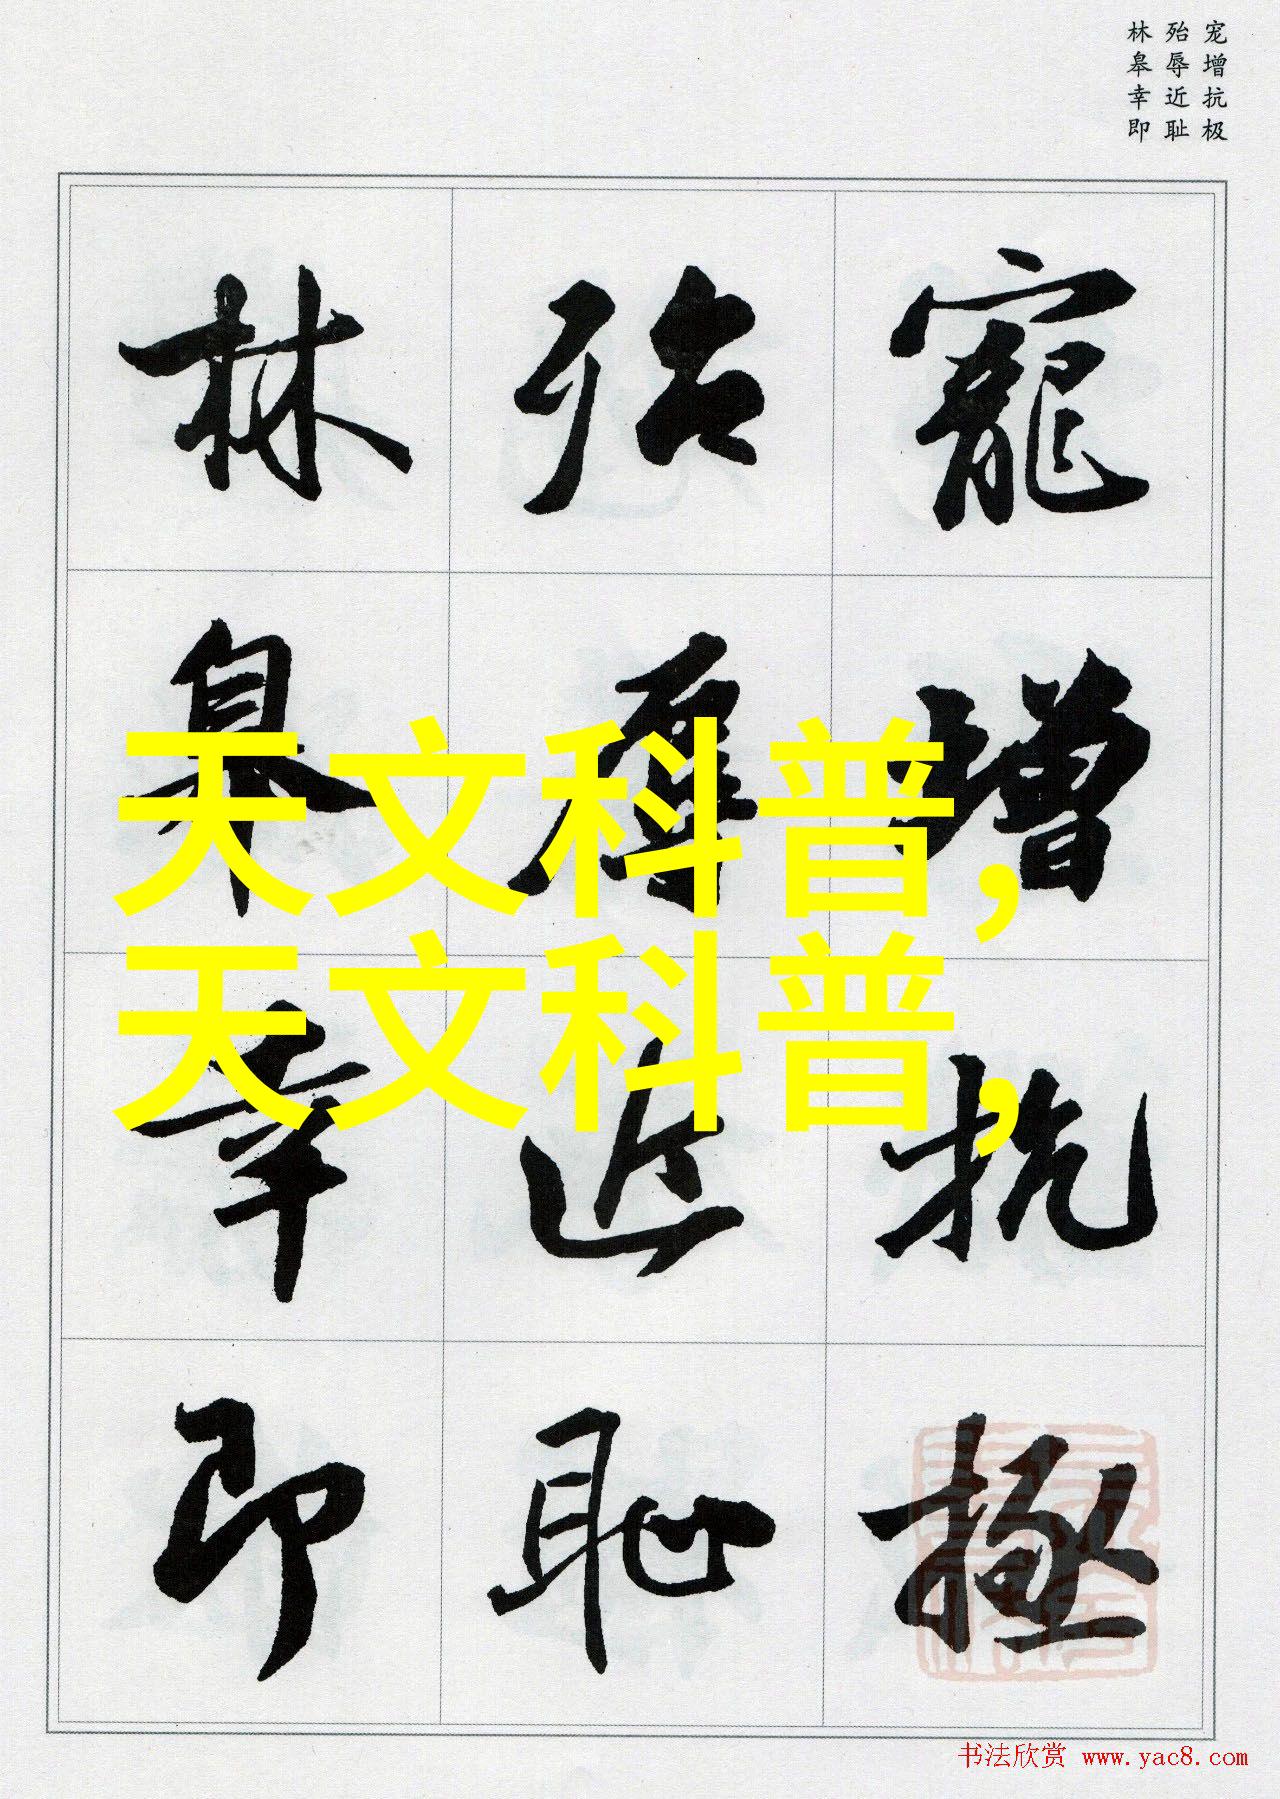 宠增抗极
殆辱近耻
林皋幸即
寵增抗極
殆辱近恥
林皋幸即
天文科普,
天文科普,
书法欣赏 www.yac8.com